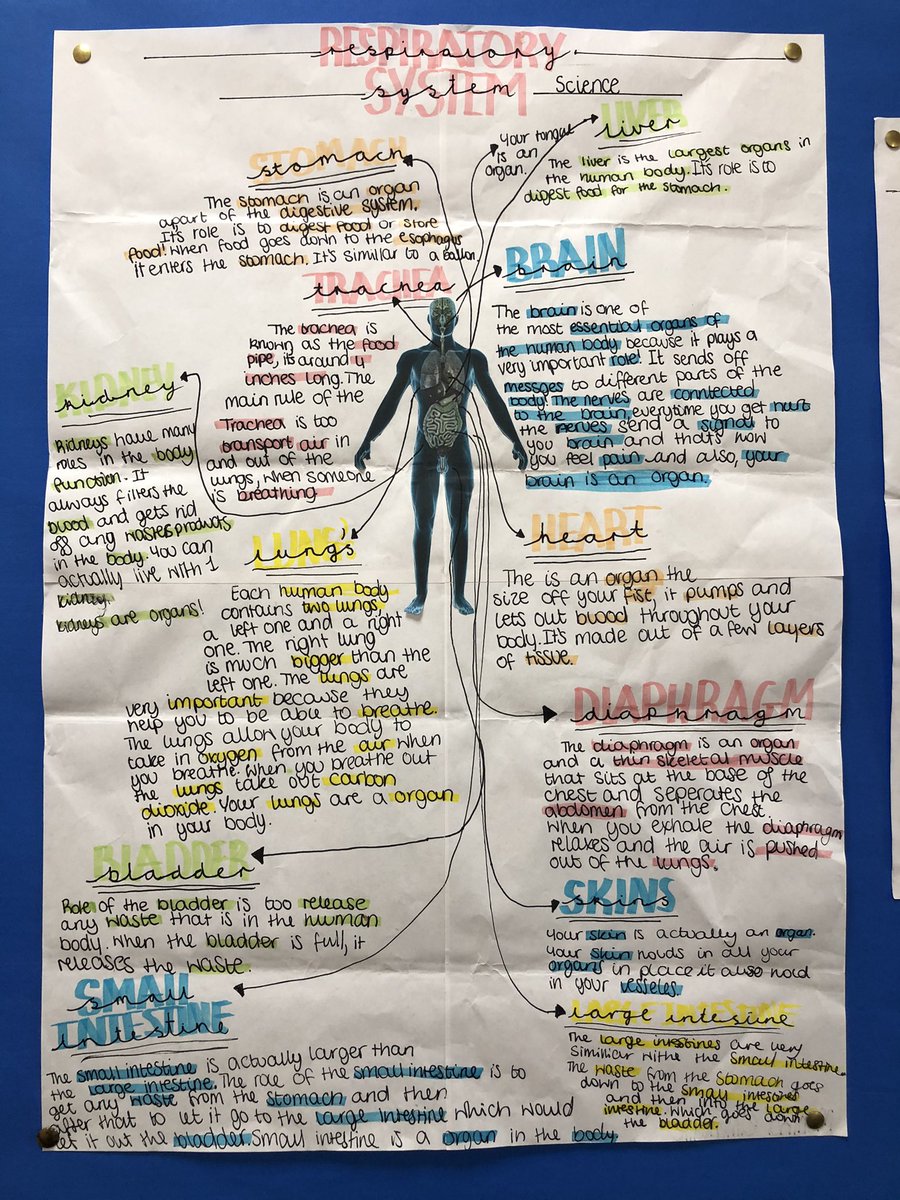 RESPIRATORY
respiratory
SYSTEM
system
Science
STOMACH
stomach
The stomach is an organ
apart of the digestive system.
It's role is to digest food or store
food! When food goes down to the esophagus
it enters the stomach. It's simillar to a ballon.
Your tongue
is an
organ.
LIVER
liver
The liver is the largest organs in
the human body. It's role is to
digest food for the stomach.
TRACHEA
trachea
The trachea is
known as the food
pipe, is around 4
inches long. The
main rule of the
Trachea is too
transport air in
and out of the
lungs, when someone
is breathing
BRAIN
brain
The brain is one of
the most essential organs of
the human body because it plays a
very important role! It sends off
messges to different parts of the
body! The nerves are connected
to the brain, everytime you get hurt
the nerves send a signal to
you brain and thats how
you feel pain and also, your
brain is an organ.
KIDNEY
kidney
Kidneys have many
roles in the body
function. It
always filters the
blood and gets rid
off any wastes products
in the body. You can
actually live with 1
kidney.
kidneys are organs!
LUNGS
lungs
Each human body
contains two lungs,
a left one and a right
one. The right lung
is much bigger than the
left one. The lungs are
very important because they
help you to be able to breathe.
The lungs allow your body to
take in oxygen from the air when
you breathe. When you breathe out
the lungs take out carbon
dioxide. Your lungs are a organ
in your body.
HEART
heart
The is an organ the
size off your fist it pumps and
lets out blood throughout your
body. It's made out of a few layers
of tissue.
DIAPHRAGM
diaphragm
The diaphragm is an organ
and a thin skeletal muscle
that sits at the base of the
chest and seperates the
abdomen from the chest.
When you exhale the diaphragm
relaxes and the air is pushed
out of the lungs.
BLADDER
bladder
Role of the bladder is too release
any waste that is in the human
body. When the bladder is full, it
releases the waste.
SKINS
skins
Your skin is actually an organ.
Your skin holds in all your
organs in place it also hold
in your
SMALL
small
INTESTINE
intestine
The small intestine is actually larger than
the large intestine. The role of the small intestine is to
get any waste from the stomach and then
after that to let it go to the large intestine which would
let it out the bladder. Small intestine is a organ in the body.
LARGE INTESTINE
large intestine
The large intestines are very
similiar withe the small intestine.
The waste from the stomach goes
down to the small intesines
and then into the large
intestine. Which goes down
the bladder.